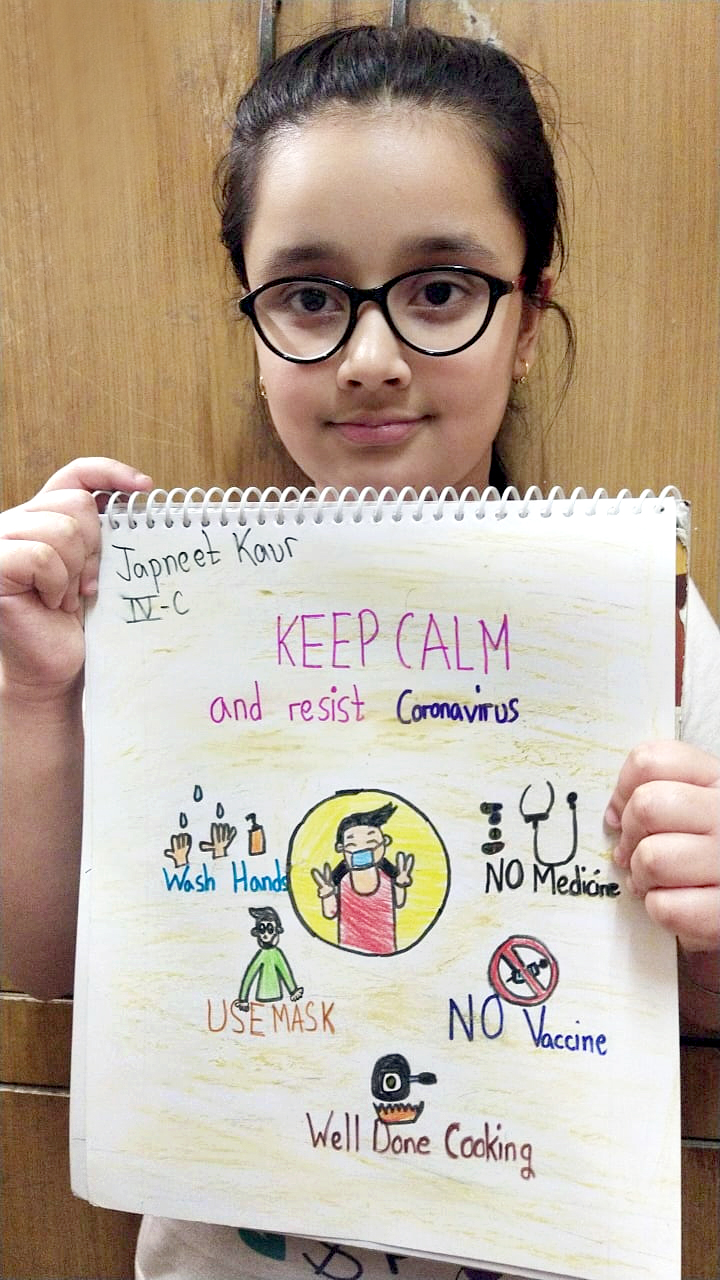 Japneet Kaur
IV-C
KEEP CALM
and resist Coronavirus
Wash Hands
NO Medicine
USE MASK
NO Vaccine
Well Done Cooking